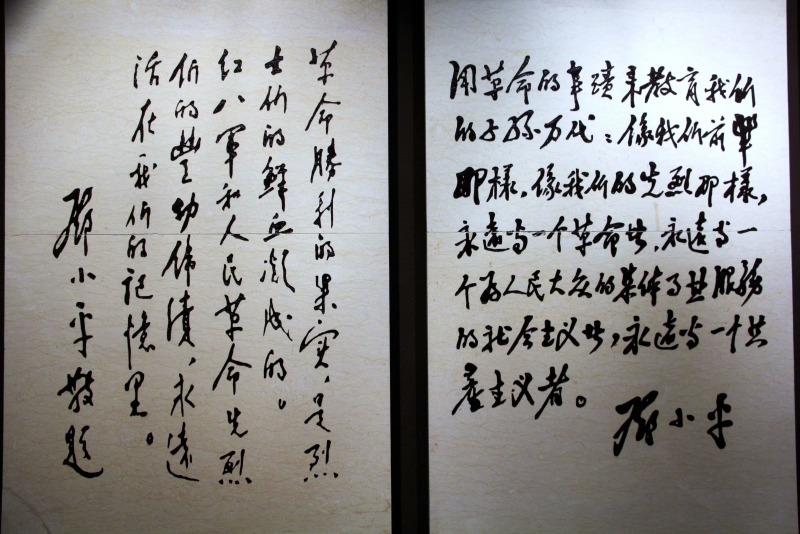 革命勝利的果实，是烈
士们的鲜血凝成的。
红八軍和人民革命先烈
们的豐功偉績，永遠
活在我们的記憶里。
鄧小平敬題
用革命的事蹟来教育我们
的子孫万代：像我们前輩
那樣，像我们的先烈那樣，
永遠当一个革命者，永遠当一
个为人民大众的集体事业服務
的社会主义者，永遠当一个共
產主义者。
鄧小平